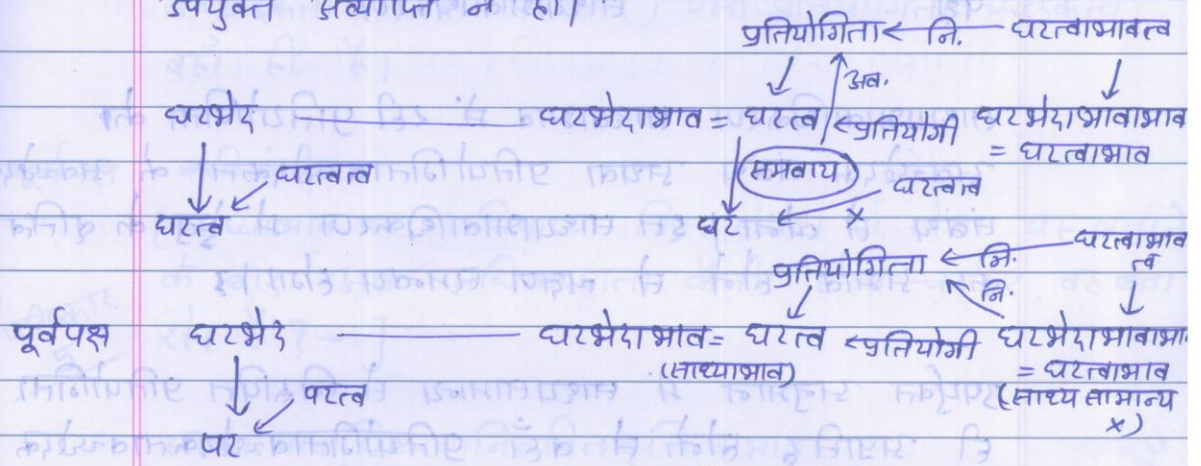 उपर्युक्त अव्याप्ति न हो।
प्रतियोगिता ← नि. — घटत्वाभावत्व
अव.
घटभेद — घटभेदाभाव = घटत्व < प्रतियोगी घटभेदाभावाभाव
(समवाय) = घटत्वाभाव
घटत्वत्व घटत्वत्व
घटत्व घट x
प्रतियोगिता ← नि. — घटत्वाभाव
त्व
नि.
पूर्वपक्ष घटभेद — घटभेदाभाव = घटत्व < प्रतियोगी घटभेदाभावाभा
(साध्याभाव) = घटत्वाभाव
पटत्व (साध्य सामान्य
पट x)